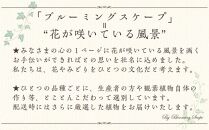 「ブルーミングスケープ」
=
“花が咲いている風景”
★みなさまの心の1ページに花が咲いている風景を画く
お手伝いができればとの思いを社名に込めました。
私たちは、花やみどりをひとつの文化だと考えます。
★ひとつの品種ごとに、生産者の方や観葉植物自体の
作り等、とことんこだわって選別しています。
配送時にはさらに厳選した植物をお届けいたします。
By Blooming Scape